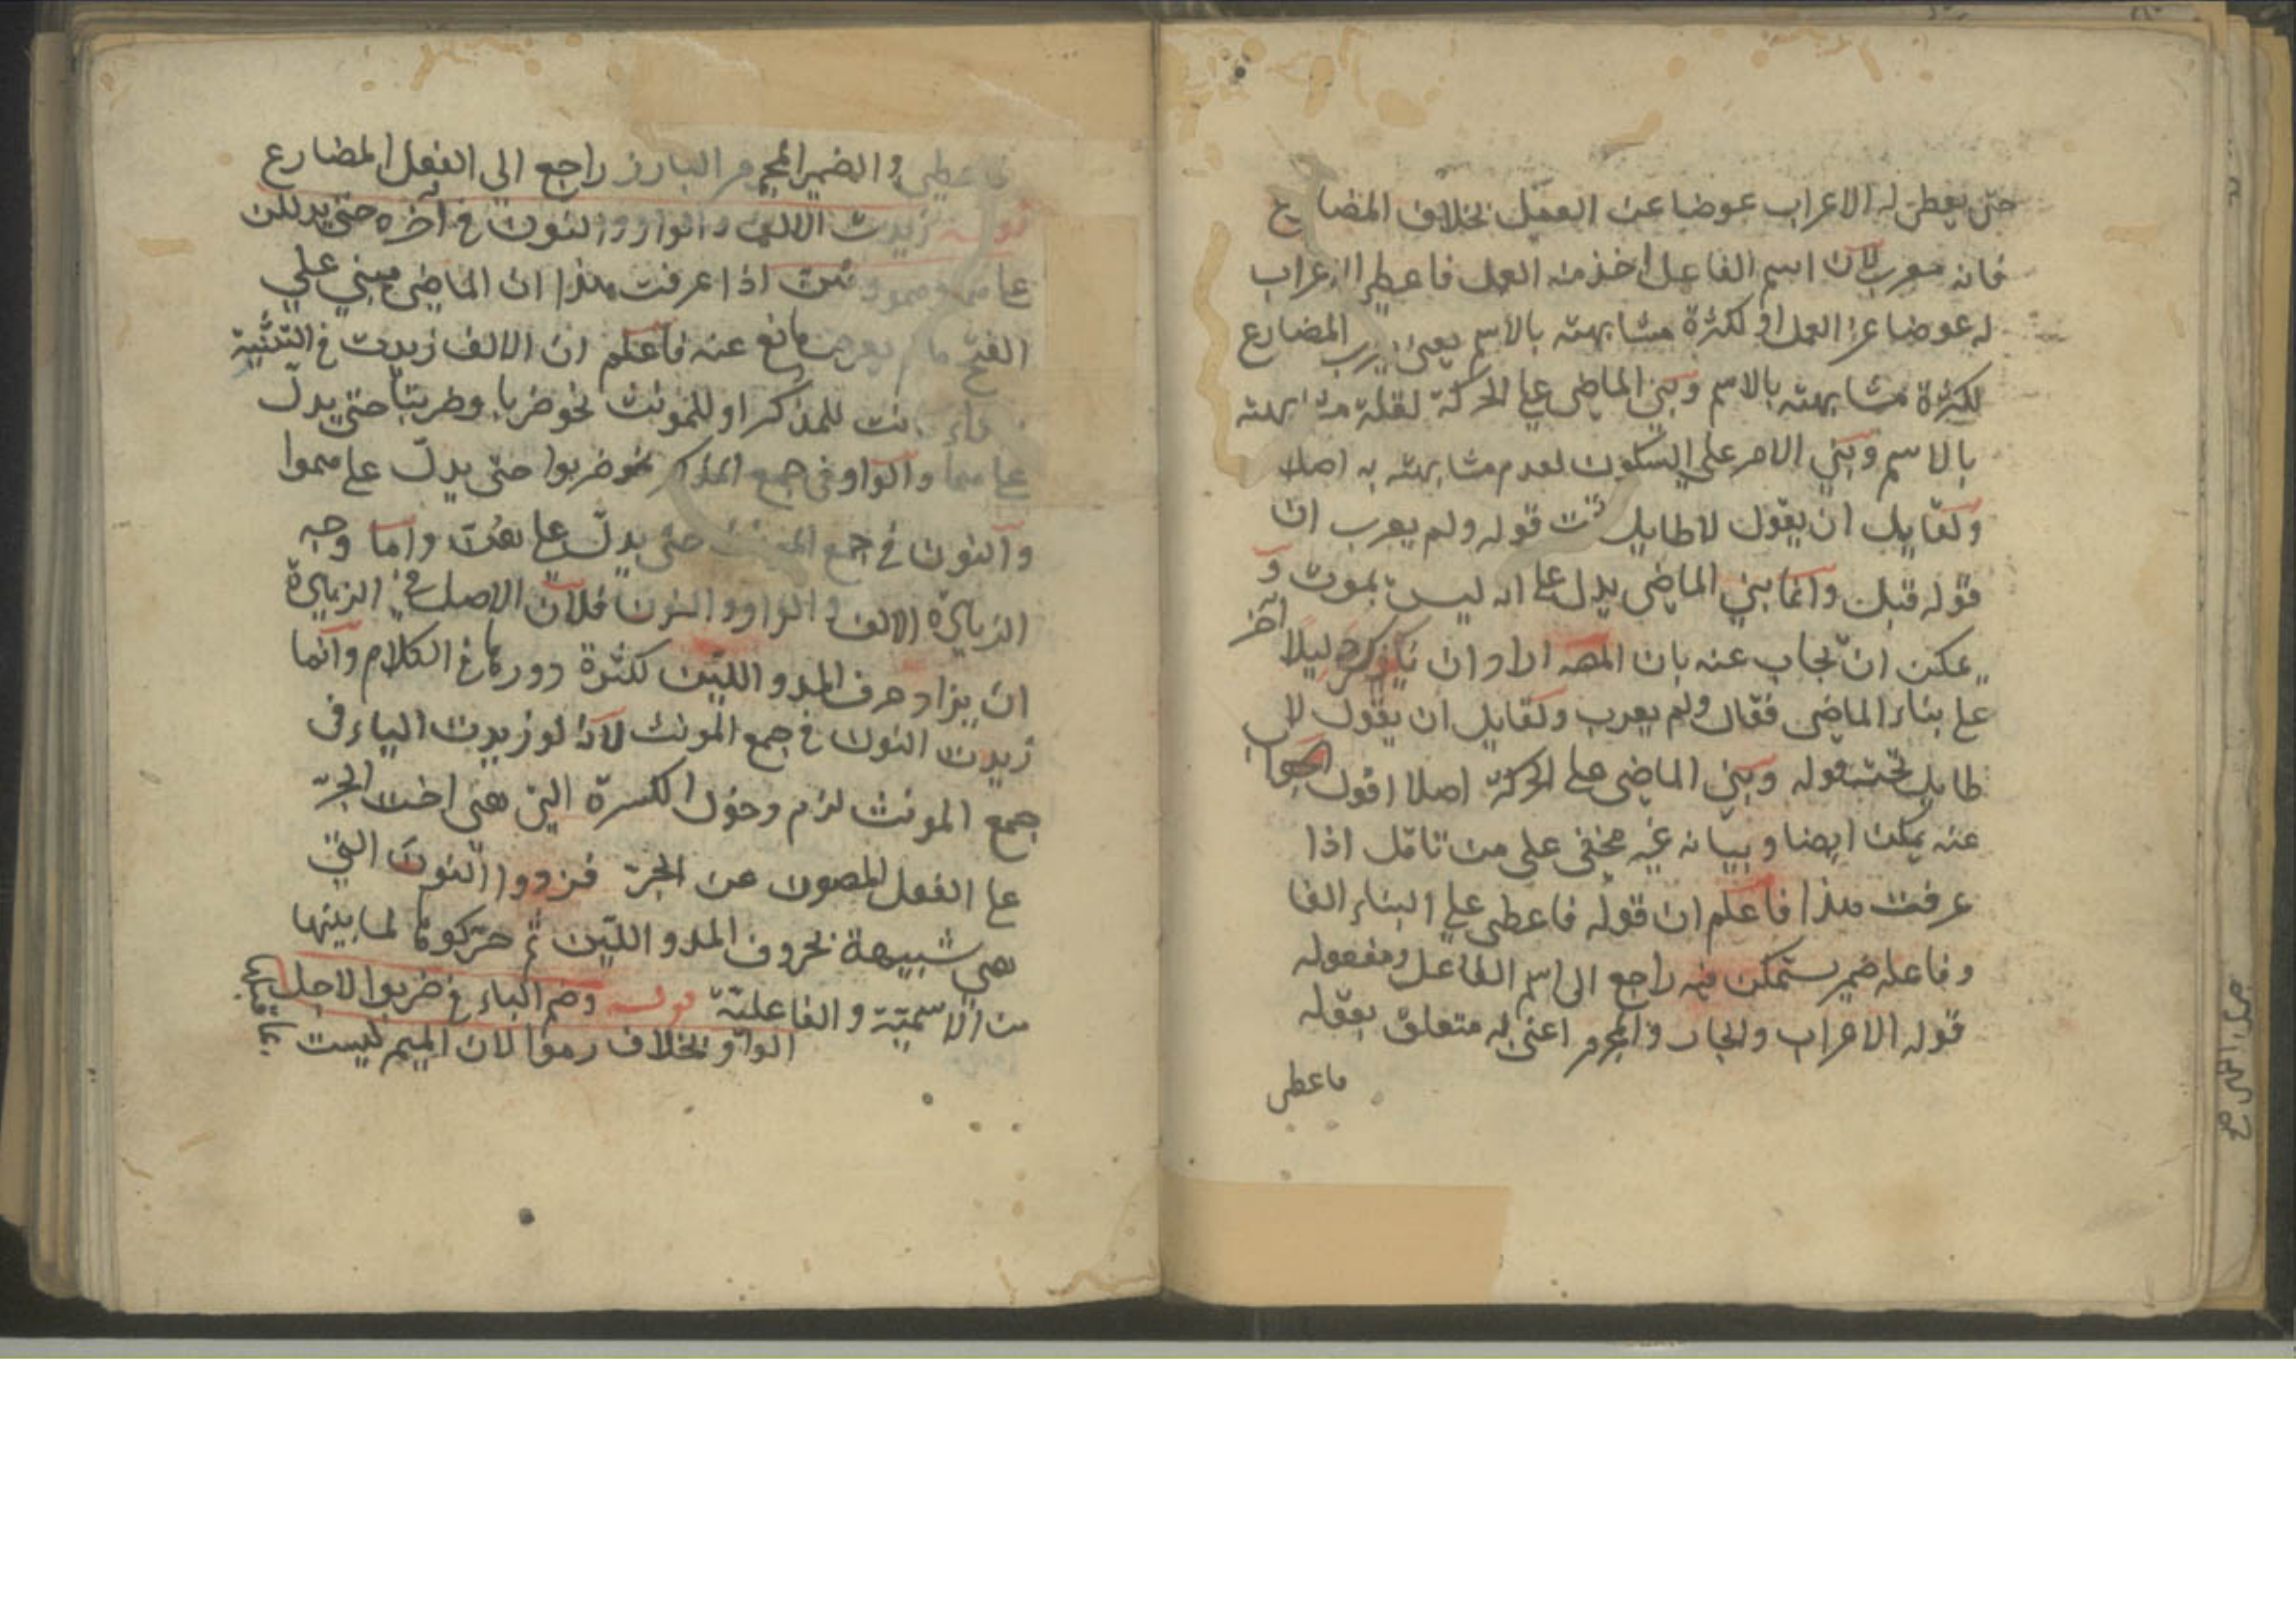 حتى يعطى له الاعراب عوضا عن العمل بخلاف المضارع
فانه معرب لان اسم الفاعل اخذ منه العمل فاعطى الاعراب
له عوضا عن العمل او لكثرة مشابهته بالاسم يعنى يعرب المضارع
لكثرة مشابهته بالاسم وبني الماضى على الحركة لقلة مشابهته
بالاسم وبني الامر على السكون لعدم مشابهته به اصلا
ولقايل ان يقول لا طايل تحت قوله ولم يعرب ان
قوله قبل وانما بني الماضى يدل على انه ليس بموت و
يمكن ان يجاب عنه بان المصـ اراد ان يذكر دليلا آخر
على بناء الماضى فقال ولم يعرب ولقايل ان يقول لا
طايل تحت قوله وبني الماضى على الحركة اصلا اقول الجواب
عنه يمكن ايضا وبيانه غير مخفى على من تامل اذا
عرفت هذا فاعلم ان قوله فاعطى على البناء الفا
وفاعله ضمير مستمكن فيه راجع الى اسم الفاعل ومفعوله
قوله الاعراب والجار والمجرور اعنى له متعلق بقوله
فاعطى
فاعطى والضمير المجرور البارز راجع الى الفعل المضارع
قوله زيدت الالف والواو والنون فى آخره حتى يدللن
على هما وهموا وهن اذا عرفت هذا ان الماضى مبني على
الفتح ما لم يعرض مانع عنه فاعلم ان الالف زيدت فى التثنية
كانت للمذكر او للمونث نحو ضربا وضربتا حتى يدل
على هما والواو فى جمع المذكر نحو ضربوا حتى يدل على هموا
والنون فى جمع المونث حتى يدل على هن واما وجه
الزيادة الالف والواو والنون فلان الاصل فى الزيادة
ان يزاد حرف المد واللين لكثرة دورها فى الكلام وانما
زيدت النون فى جمع المونث لانه لو زيدت الياء فى
جمع المونث لزم دخول الكسرة التى هى اخت الجر
على الفعل المصون عن الجر فزدوا النون التى
هى شبيهة بحروف المد واللين ثم حركوها لما بينها
من الاسمية والفاعلية قوله وضم الباء فى ضربوا لاجل
الواو بخلاف رموا لان الميم ليست بما قبلها